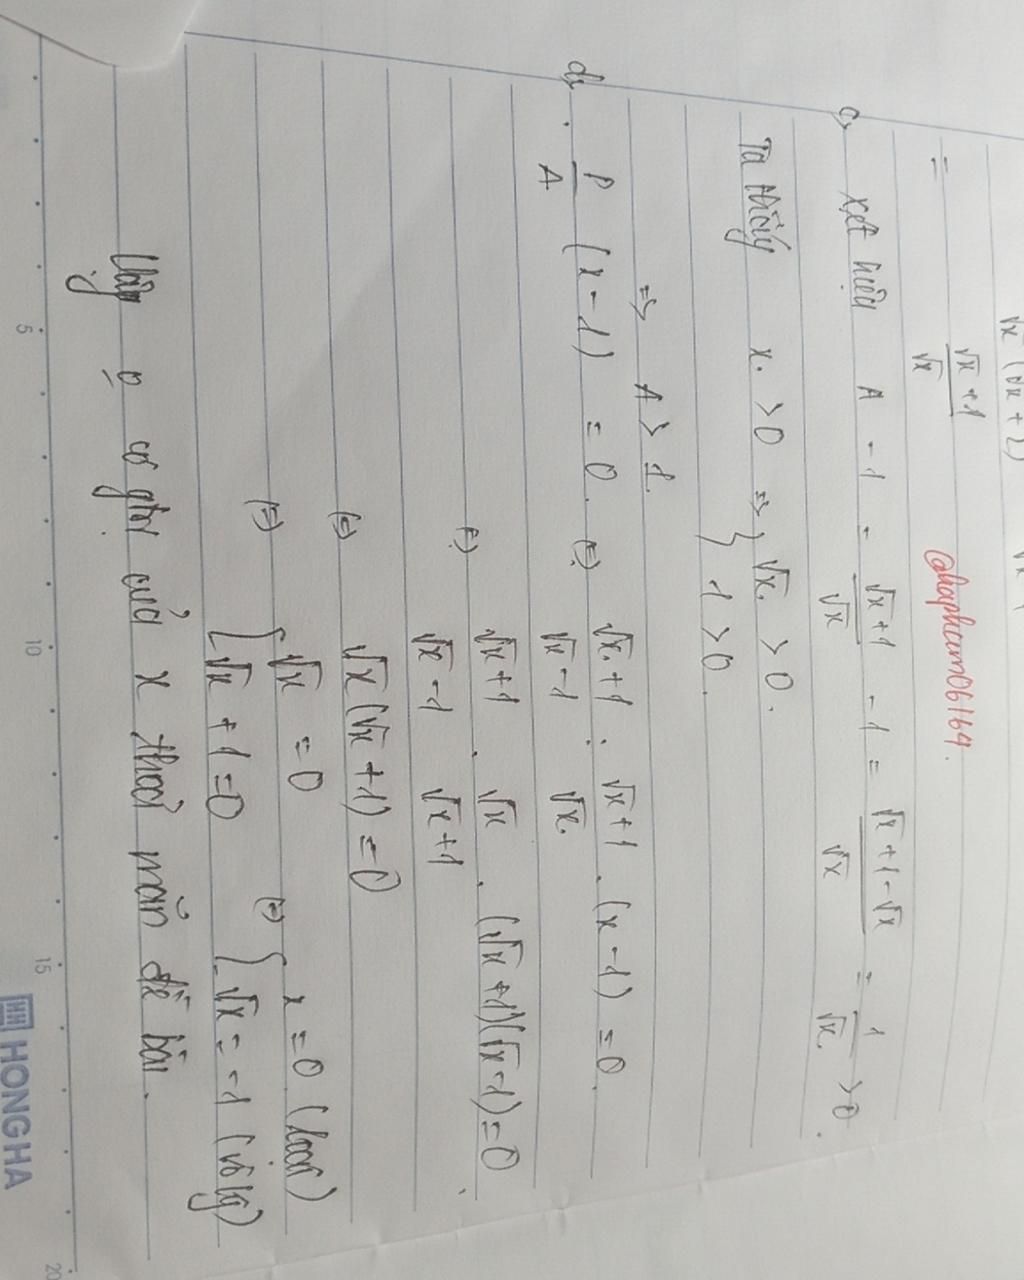 √x (√x + 2) √x
= √x + 1 / √x
@haphum06164
c, xét hiệu A - 1 = √x+1 / √x - 1 = √x+1-√x / √x = 1 / √x. > 0.
Ta thấy x. > 0 => √x. > 0.
1 > 0.
=> A > 1.
d, . P / A (x - 1) = 0. (=) √x.+1 / √x-1 : √x+1 / √x. . (x - 1) = 0.
(=) √x+1 / √x-1 . √x / √x+1 . (√x+1)(√x-1) = 0
(=) √x (√x+1) = 0
(=) [ √x = 0 (=) [ x = 0 (loại)
√x + 1 = 0 √x = -1 (vô lý)
Vậy ọ có gtri của x thoả mãn đề bài.
5 10 15 20
HH HONG HA